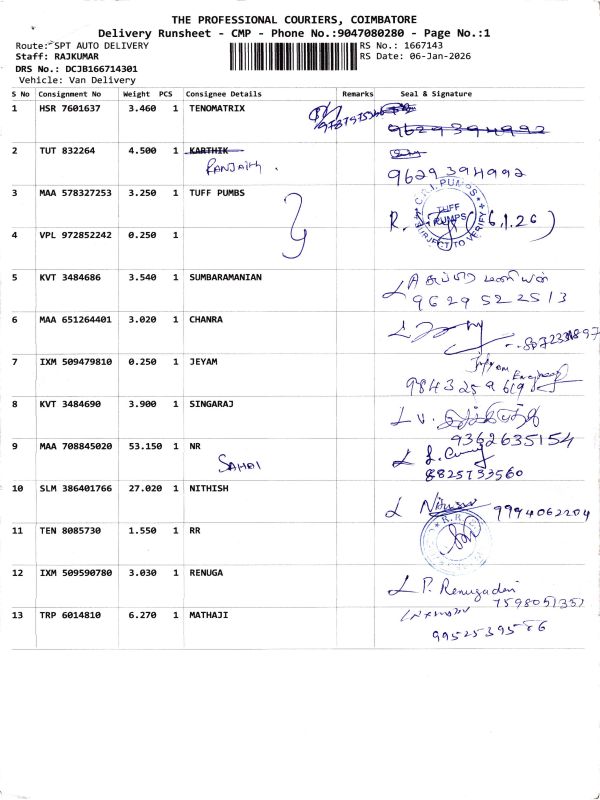 THE PROFESSIONAL COURIERS, COIMBATORE
Delivery Runsheet - CMP - Phone No.:9047080280 - Page No.:1
Route: SPT AUTO DELIVERY
RS No.: 1667143
Staff: RAJKUMAR
RS Date: 06-Jan-2026
DRS No.: DCJB166714301
Vehicle: Van Delivery
S No Consignment No Weight PCS Consignee Details Remarks Seal & Signature
1 HSR 7601637 3.460 1 TENOMATRIX
9629394992
2 TUT 832264 4.500 1 KARTHIK
9629394992
3 MAA 578327253 3.250 1 TUFF PUMBS
C.R.I. PUMPS
TUFF PUMPS
SUBJECT TO VERIFY
6.1.26)
4 VPL 972852242 0.250 1
5 KVT 3484686 3.540 1 SUMBARAMANIAN
9629522513
6 MAA 651264401 3.020 1 CHANRA
7 IXM 509479810 0.250 1 JEYAM
Engineering
9843259619
8 KVT 3484690 3.900 1 SINGARAJ
9362635154
9 MAA 708845020 53.150 1 NR
SAHDI
8825733560
10 SLM 386401766 27.020 1 NITHISH
9994062204
11 TEN 8085730 1.550 1 RR
12 IXM 509590780 3.030 1 RENUGA
P. Renugadevi
7598051357
13 TRP 6014810 6.270 1 MATHAJI